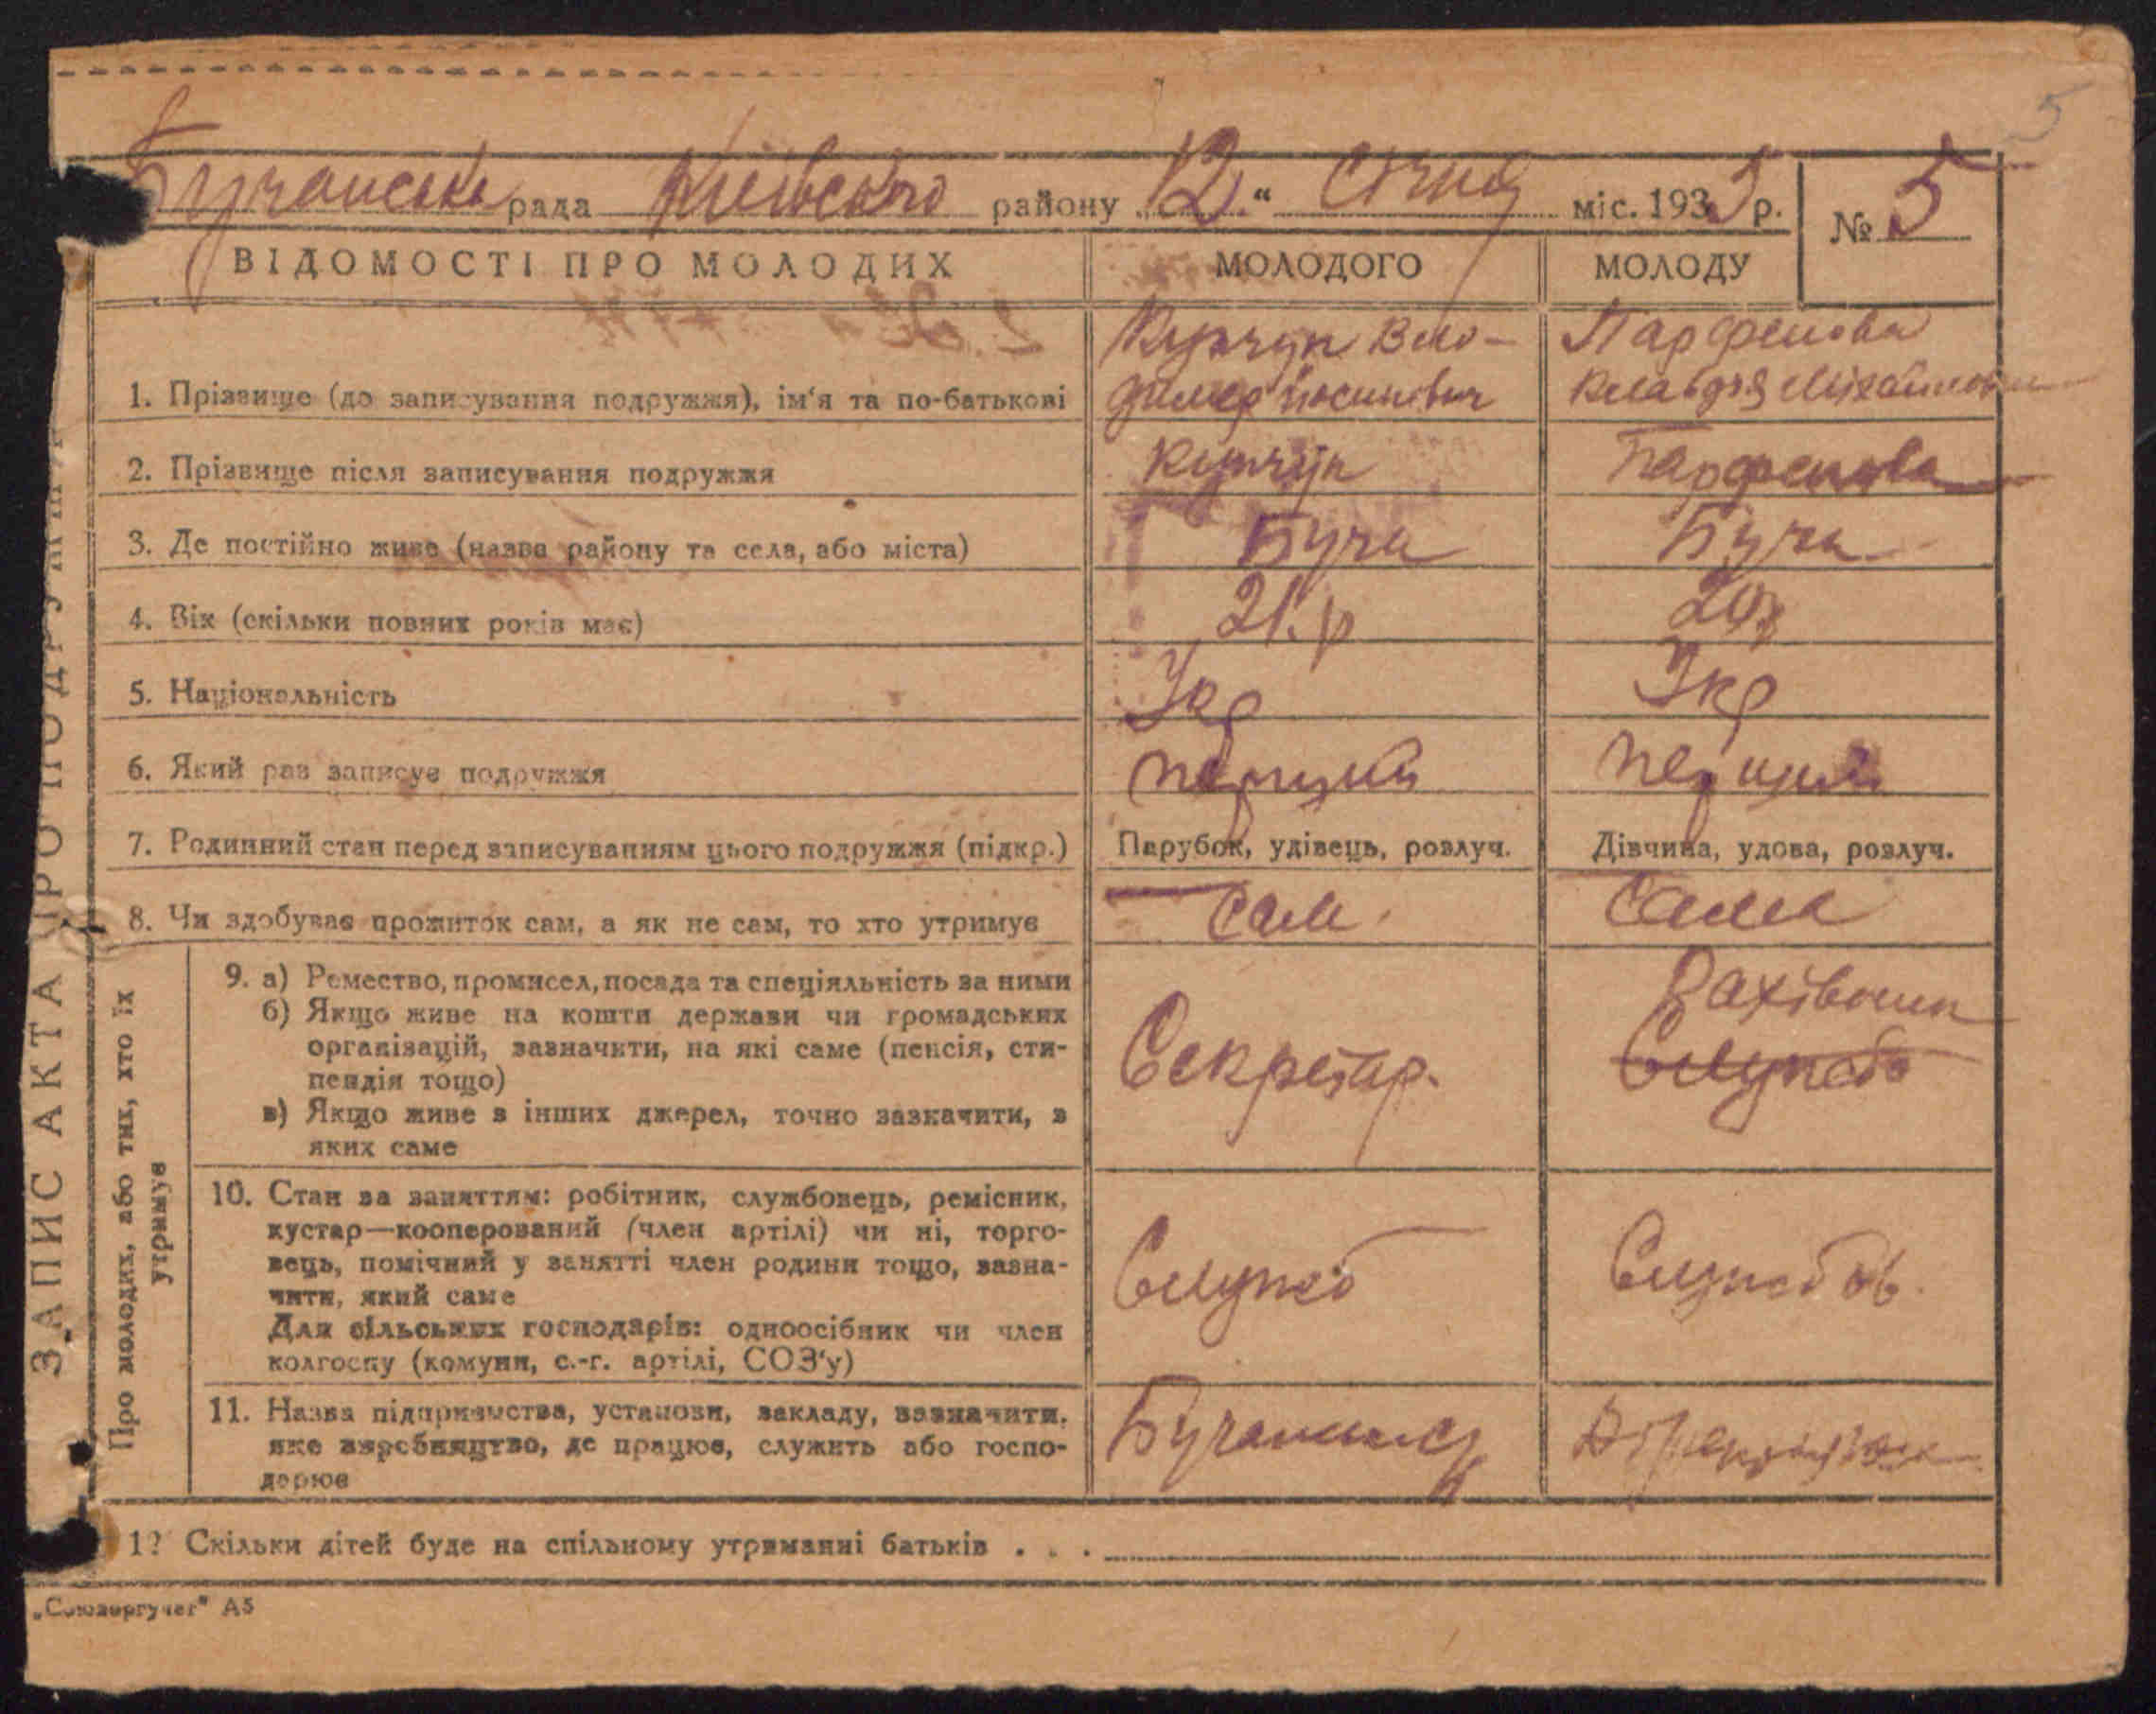 5
Бучанська рада Київського району „12“ Січня міс. 1935 р. № 5
ВІДОМОСТІ ПРО МОЛОДИХ МОЛОДОГО МОЛОДУ
1. Прізвище (до записування подружжя), ім'я та по-батькові Воло-димер Йосипович Парфенова Клавдія Міхайловна
2. Прізвище після записування подружжя Парфенова
3. Де постійно живе (назва району та села, або міста) Буча Буча
4. Вік (скільки повних років має) 21 р 20 р
5. Національність Укр Укр
6. Який раз записує подружжя перший перший
7. Родинний стан перед записуванням цього подружжя (підкр.) Парубок, удівець, розлуч. Дівчина, удова, розлуч.
8. Чи здобуває прожиток сам, а як не сам, то хто утримує сам сама
9. а) Ремество, промисел, посада та спеціяльність за ними
б) Якщо живе на кошти держави чи громадських
організацій, зазначити, на які саме (пенсія, сти-
пендія тощо)
в) Якщо живе з інших джерел, точно зазначити, з
яких саме
Секретар. Рахівник
10. Стан за заняттям: робітник, службовець, ремісник,
кустар—кооперований (член артілі) чи ні, торго-
вець, помічний у занятті член родини тощо, зазна-
чити, який саме
Для сільських господарів: одноосібник чи член
колгоспу (комуни, с.-г. артілі, СОЗ'у)
Служб Службов.
11. Назва підприємства, установи, закладу, зазначити,
яке виробництво, де працює, служить або госпо-
дарює
12 Скільки дітей буде на спільному утриманні батьків . . .
ЗАПИС АКТА ПРО ПОДРУЖЖЯ
Про молодих, або тих, хто їх
утримує
„Союзоргучет" А5